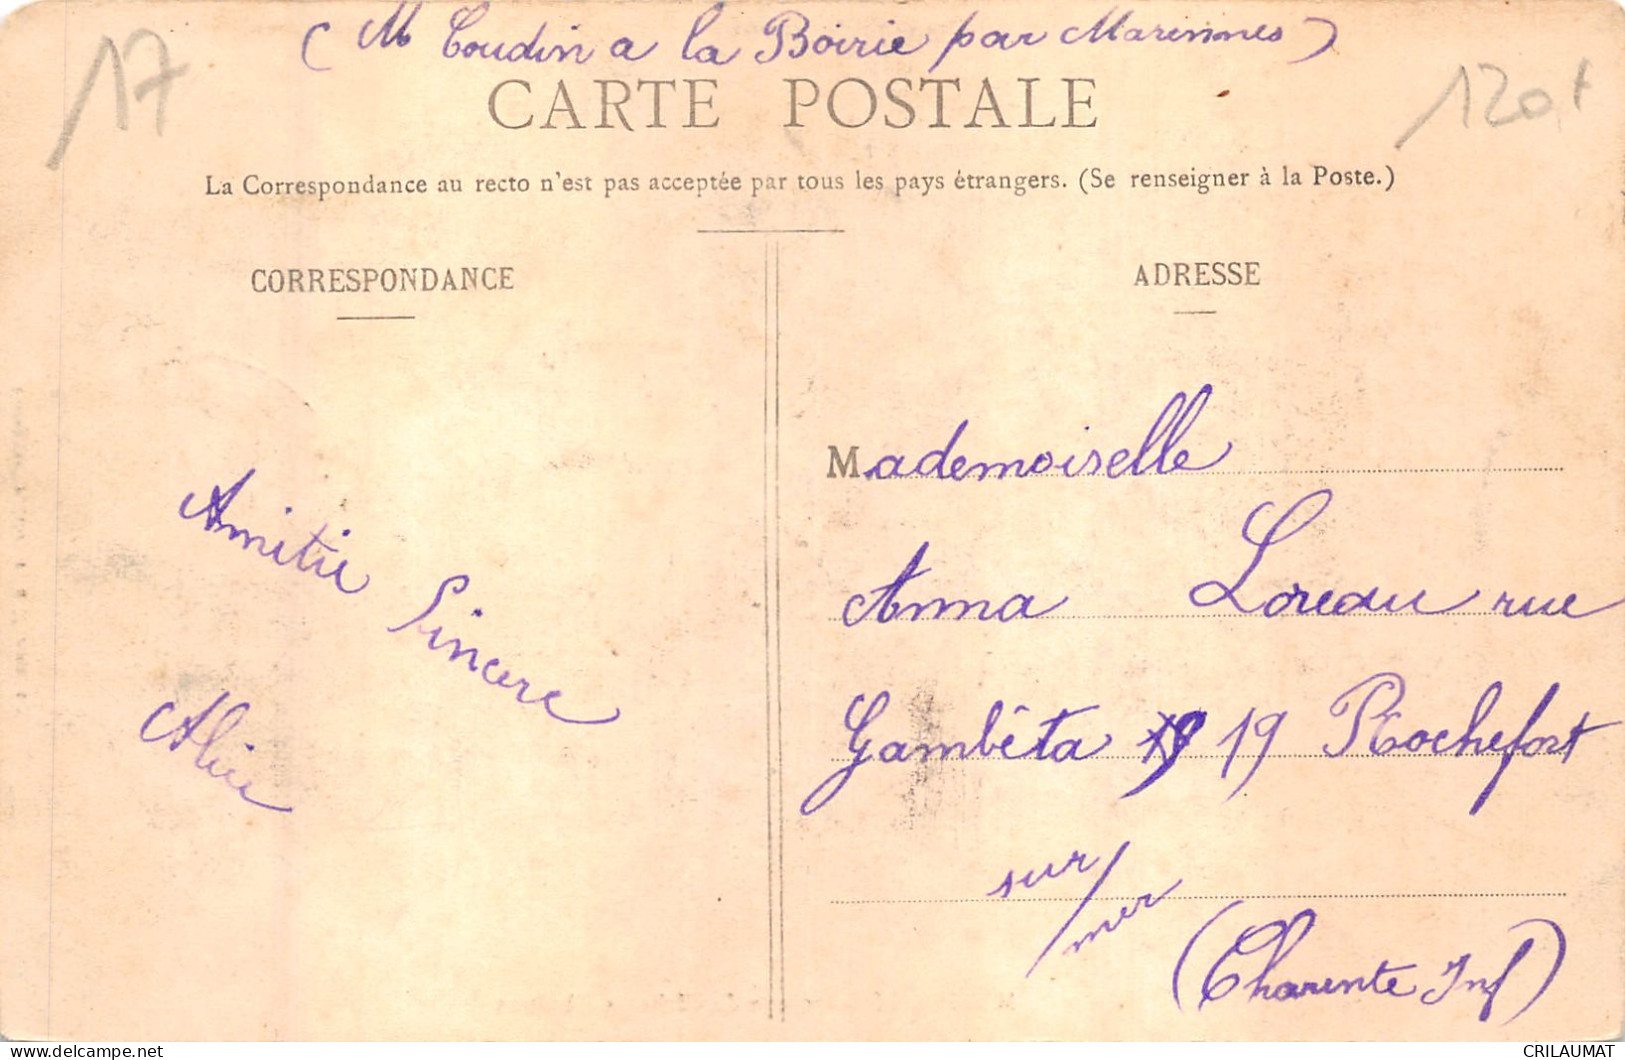 (M Coudin a la Boirie par Marennes)
17
120f
CARTE POSTALE
La Correspondance au recto n'est pas acceptée par tous les pays étrangers. (Se renseigner à la Poste.)
CORRESPONDANCE
Amitié Sincere
Alice
ADRESSE
Mademoiselle
Anna Loreau rue
Gambêta 19 Rochefort
sur/mer
(Charente Inf)
CRILAUMAT